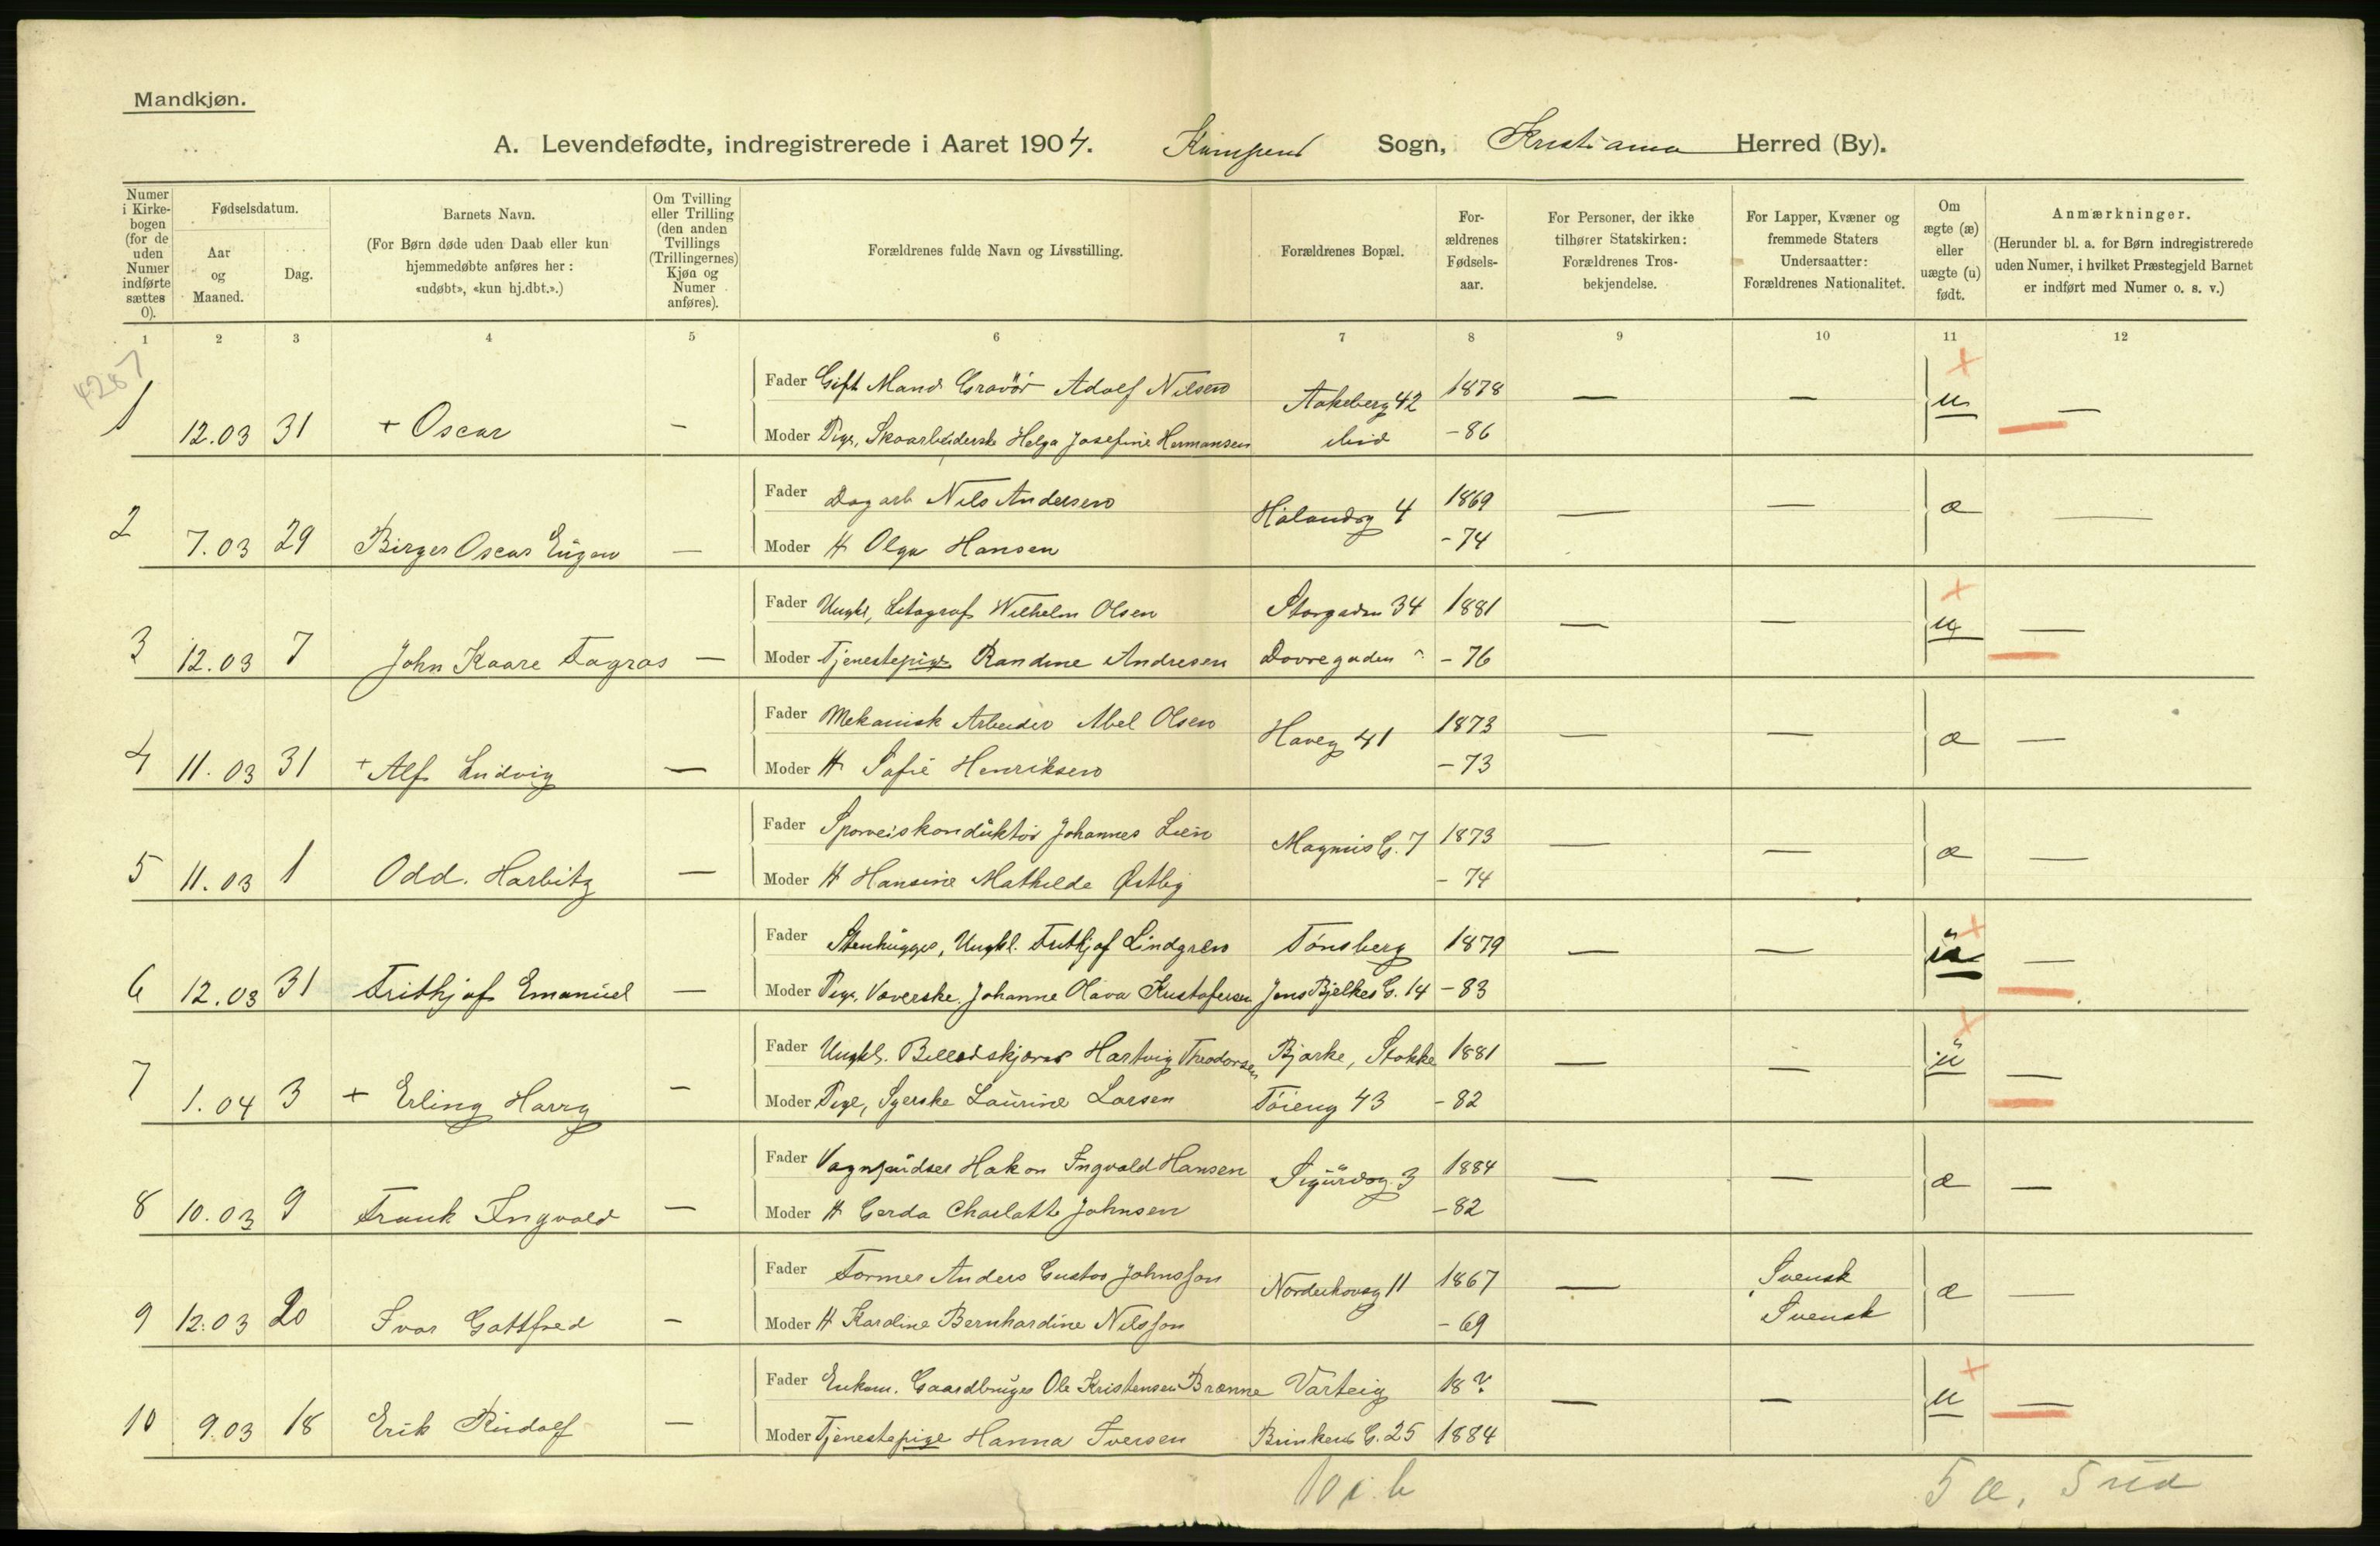 Mandkjøn.
A. Levendefødte, indregistrerede i Aaret 1904. Kampens Sogn, Kristiania Herred (By).
Numer i Kirkebogen (for de uden Numer indførte sættes 0).
Fødselsdatum.
Aar og Maaned.
Dag.
Barnets Navn.
(For Børn døde uden Daab eller kun hjemmedøbte anføres her: «udøbt», «kun hj.dbt.».)
Om Tvilling eller Trilling (den anden Tvillings (Trillingernes) Kjøn og Numer anføres).
Forældrenes fulde Navn og Livsstilling.
Forældrenes Bopæl.
Forældrenes Fødselsaar.
For Personer, der ikke tilhører Statskirken: Forældrenes Trosbekjendelse.
For Lapper, Kvæner og fremmede Staters Undersaatter: Forældrenes Nationalitet.
Om ægte (æ) eller uægte (u) født.
Anmærkninger.
(Herunder bl. a. for Børn indregistrerede uden Numer, i hvilket Præstegjeld Barnet er indført med Numer o. s. v.)
1 2 3 4 5 6 7 8 9 10 11 12
4287
Fader Gift Mand Gravör Adolf Nilsen Aakeberg 42 1878 — — u —
1 12.03 31 + Oscar — Moder Pige, Skoarbeiderske Helga Josefine Hermansen ibid - 86
Fader Dagarb Nils Andersen Hålandsg 4 1869 — — æ —
2 7.03 29 Birger Oscar Eugen — Moder H Olga Hansen - 74
Fader Ungkl, Litograf Wilhelm Olsen Storgaden 34 1881 — — u —
3 12.03 7 John Kaare Fagraas — Moder Tjenestepige Randine Andresen Dovregaden - 76
Fader Mekanisk Arbeider Abel Olsen Haveg 41 1873 — — æ —
4 11.03 31 + Alf Ludvig — Moder H Sofie Henriksen - 73
Fader Sporveiskonduktör Johannes Lien Magnus G. 7 1873 — — æ —
5 11.03 1 Odd. Harbitz — Moder H Hansine Mathilde Østby - 74
Fader Stenhugger, Ungkl. Frithjof Lindgren Tönsberg 1879 — — u —
6 12.03 31 Frithjof Emanuel — Moder Pige, Væverske, Johanne Olava Kristofersen Jens Bjelkes G. 14 - 83
Fader Ungkl. Billedskjærer Hartvig Theodorsen Bjærke, Stokke 1881 — — u —
7 1.04 3 + Erling Harry — Moder Pige, Syerske Laurine Larsen Töieng 43 - 82
Fader Vognsmidsel Hakon Ingvald Hansen Sigurdsg. 3 1884 — — æ —
8 10.03 9 Frank Ingvald — Moder H Gerda Charlotte Johnsen - 82
Fader Former Anders Gustav Johnsson Norderhovsg 11 1867 — Svensk æ —
9 12.03 20 Ivar Gottfred — Moder H Karoline Bernhardine Nilsson - 69 Svensk
Fader Enkem. Gaardbruger Ole Kristensen Brænne Varteig 18? — — u —
10 9.03 18 Erik Rudolf — Moder Tjenestepige Hanna Iversen Brinkens G. 25 1884
10 i. b 5 æ, 5 u